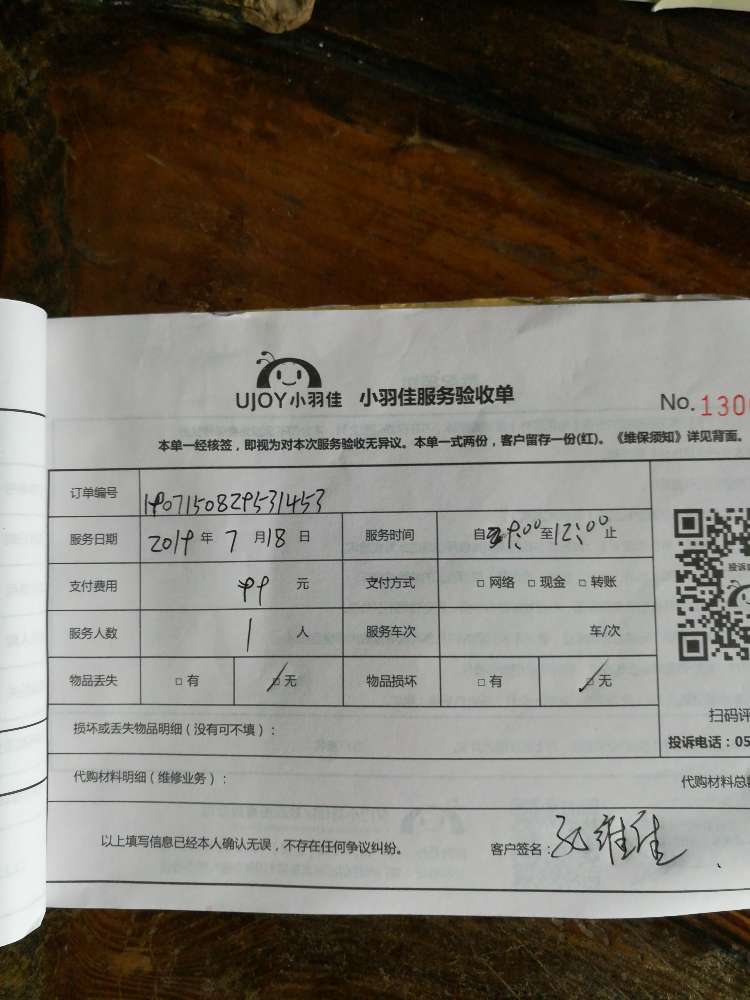 UJOY小羽佳 小羽佳服务验收单
No. 130
本单一经核签，即视为对本次服务验收无异议。本单一式两份，客户留存一份(红)。《维保须知》详见背面。
订单编号 1907150829531453
服务日期 2019 年 7 月 18 日 服务时间 自 9:00 至 12:00 止
支付费用 99 元 支付方式 □ 网络 □ 现金 □ 转账
服务人数 1 人 服务车次 车/次
物品丢失 □ 有 ☑ 无 物品损坏 □ 有 ☑ 无
投诉
扫码评
损坏或丢失物品明细（没有可不填）：
投诉电话：05
代购材料明细（维修业务）： 代购材料总
以上填写信息已经本人确认无误，不存在任何争议纠纷。 客户签名：